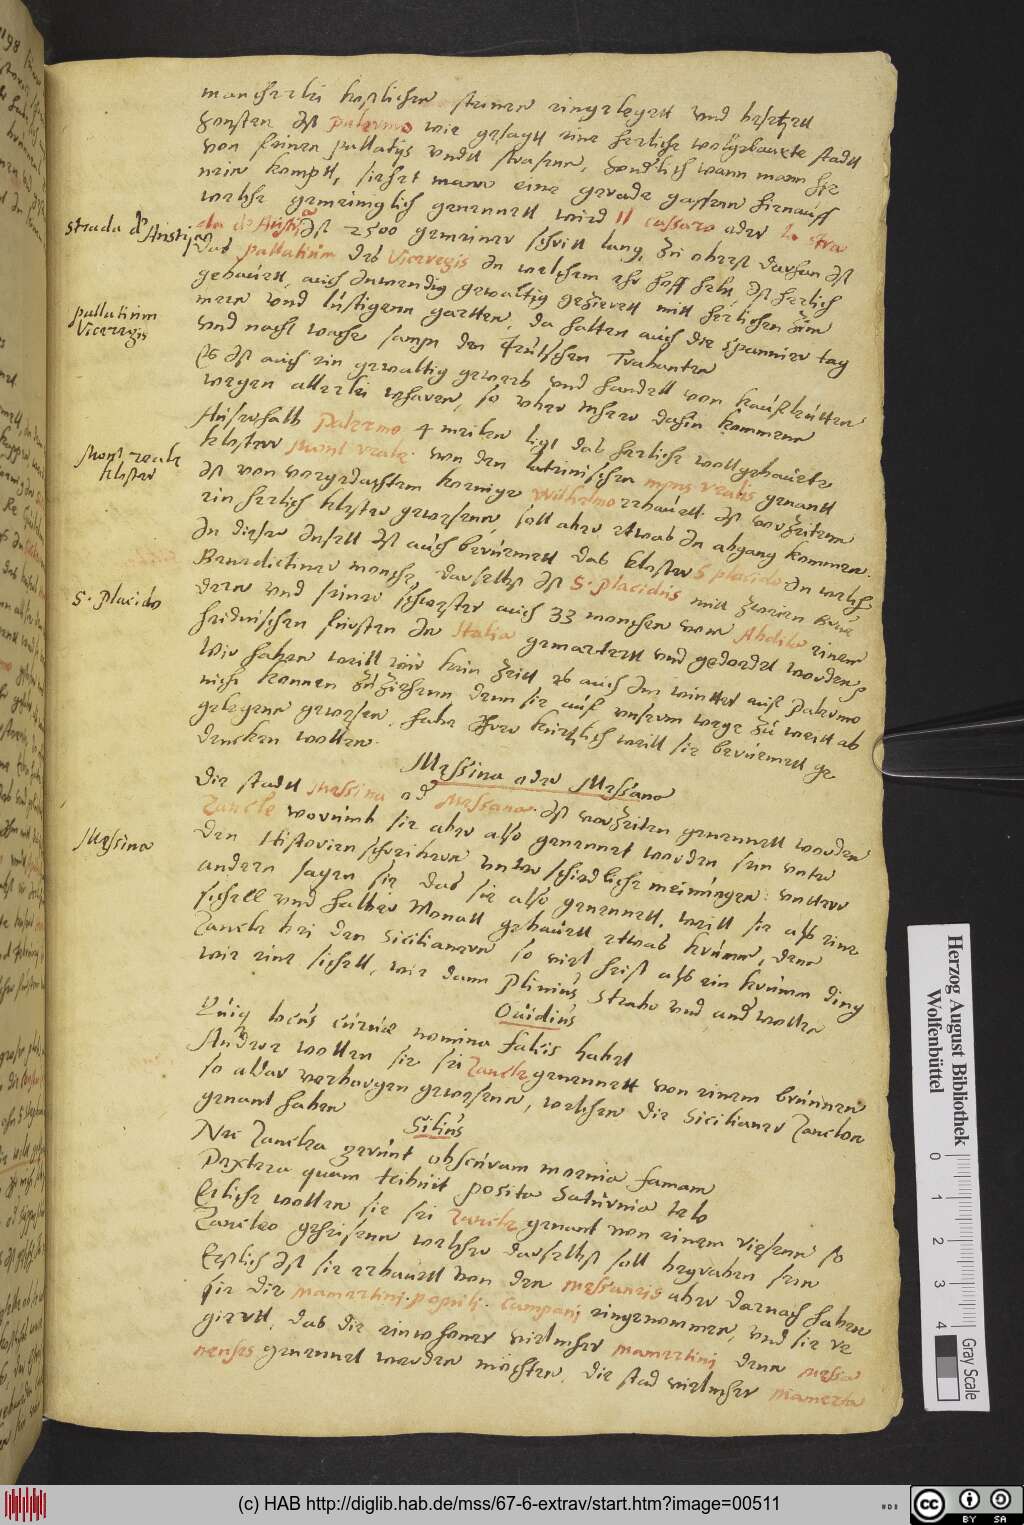 mancherlei kostlichen steinen eingelegett und besetzett
Sonsten Ist Palermo wie gesagtt eine herliche wolgebauete stadtt
von feinen pallatijs undtt strasenn, Sonderlich wann mann hin
nein komptt, siehet mann eine gerade gassen hienauff
welche gemeinglich genennett wird Il cassaro oder La stra
strada d'Austria
da de Austria Ist 2500 gemeiner schritt lang, Zu oberst darfan Ist
das pallatium des Viceregis In welchem ehr hoff helt, Ist herlich
gebauett, auch Inwendig gewaltig gezierett mitt herlichen Zim
pallatium
Viceregis
mern und lustigenn gartten, da halten auch die Spannier tag
und nacht wache sampt den Teutschen Trabanten
Es Ist auch ein gewaltig gewerb und handell von kaufleutten
wegen allerlei wharen, so uber mheer dahin kommenn
Auserhalb Palermo 4 meilen ligt das herliche wollgebauete
Mont reale
kloster
kloster Mont reale. von den lateinischen mons realis genantt
Ist von vorgedachtem koenige Wilhelmo erbauett. Ist vorzeitenn
ein herlich kloster gewesenn, soll aber etwas In abgang kommen.
In dieser Insell Ist auch beruemett das kloster S placido In welch
S. Placido
Benedictiner monche, daselbst Ist S. Placidus mitt zweien Brue
dern und seiner schwester auch 33 monchen vom Abdila einem
heidnischen fursten In Italia gemartertt und gedoedet worden,
Wir haben weill wir kein Zeitt es auch Im wintter auss Palermo
nicht konnen Zu Ziehenn denn sie auss unserem wege Zu weitt ab
gelegenn gewesen, habe Ihrer kurtzlich weill sie beruemett ge
dencken wollen.
Messina oder Messano
Die stadtt Messina od Messana. Ist vorzeiten genennett worden
Messina
Zancle worumb sie aber also genennet worden sein unter
den Historienschreibern unterschiedliche meinungen: unttere
andern sagen sie das sie also genennett, weill sie als eine
sichell und halber Monatt gebauett etwas krumm, denn
Zancle bei den Sicilianern so viel heist als ein krumm ding
wie eine sichell, wie dann Plinius Strabo und and wollen
Ouidius
Quiq locus curuae nomina falcis habet
Andere wollen sie sei Zancle genennett von einem brunnen
so aldar verborgen gewesenn, welchen die Sicilianer Zanclon
genant haben
Silius
Nec Zanclea gerunt obscuram moenia famam
Dextera quam tribuit posita Saturnia telo
Etliche wollen sie sei Zancle genant von einem riesenn so
Zancleo geheisenn welcher daselbst soll begraben sein
Erstlich Ist sie erbauett von den Messeneis aber darnach haben
sie die Mamertinj. populi. Campanj eingenommen, und sie re
giertt, das die einwohner vielmher Mamertinj denn Messa
nenses genennet werden mochten, die stad vielmher Mamerta
(c) HAB http://diglib.hab.de/mss/67-6-extrav/start.htm?image=00511
Herzog August Bibliothek
Wolfenbüttel
0 1 2 3 4
Gray Scale
cc BY SA